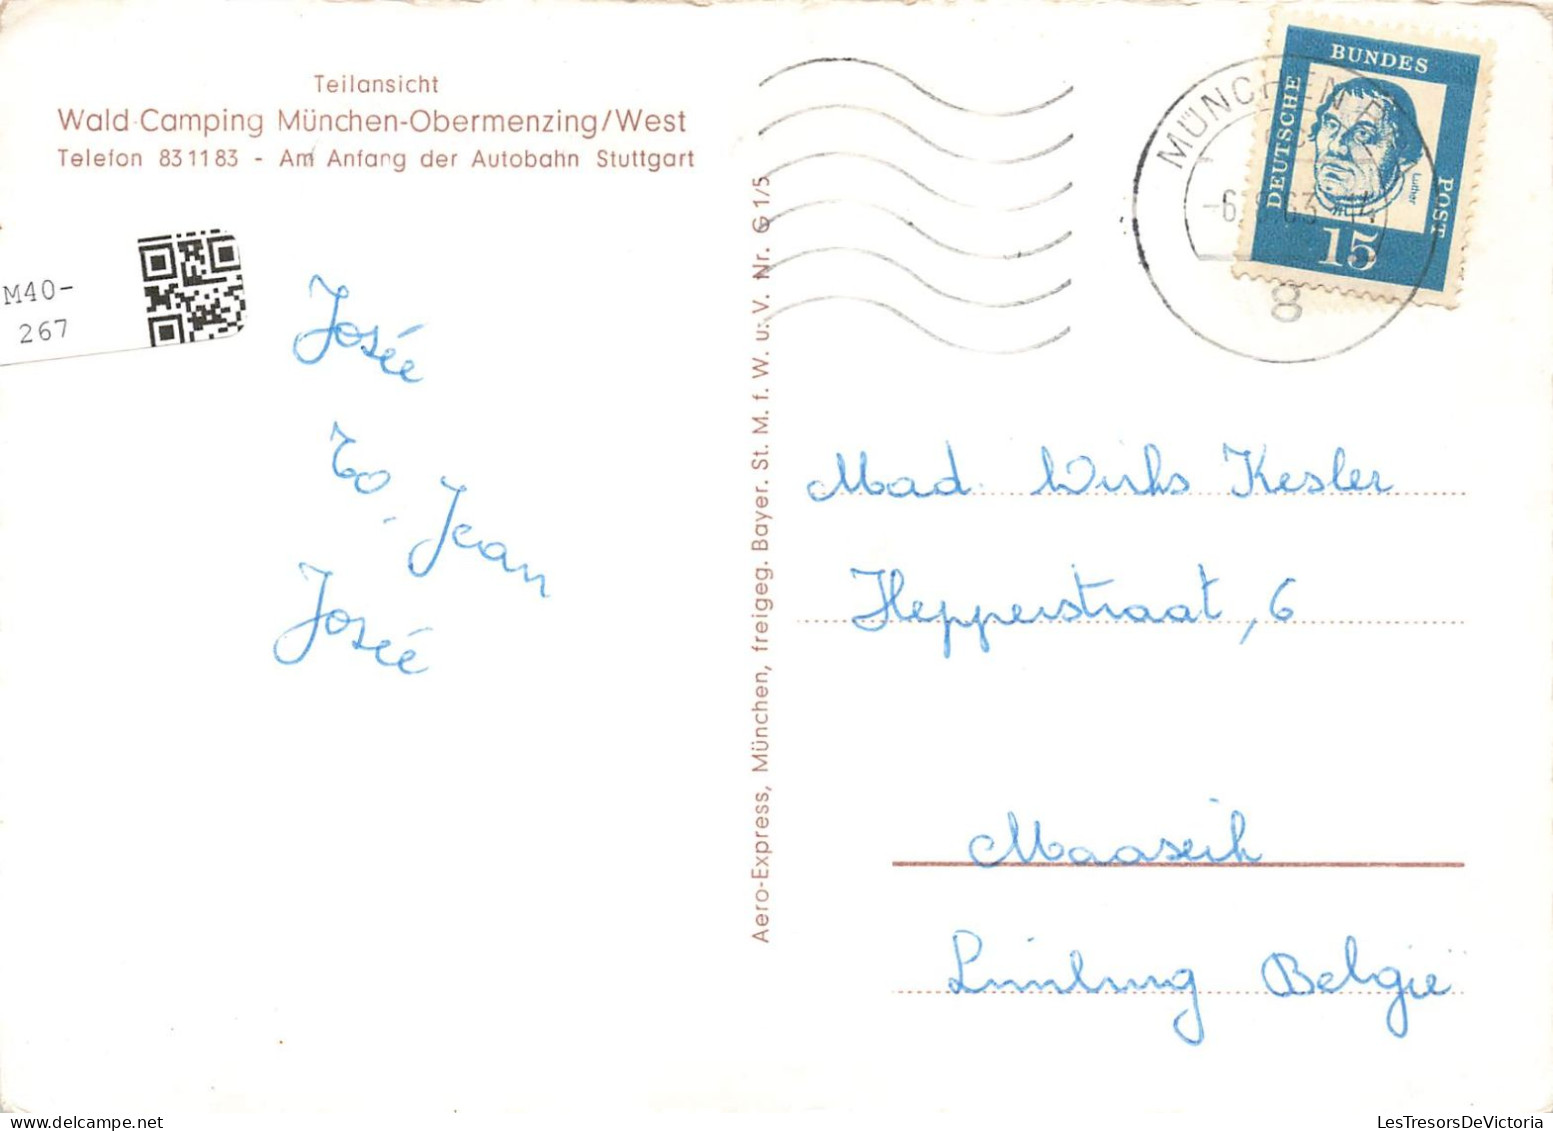 Teilansicht
Wald-Camping München-Obermenzing/West
Telefon 83 11 83 - Am Anfang der Autobahn Stuttgart
M40-
267
Josée
to
Jean
Josée
Aero-Express, München, freigeg. Bayer. St. M. f. W. u. V. Nr. G 1/5
MÜNCHEN
8
DEUTSCHE
BUNDES
POST
Luther
15
Mad. Wirks Kesler
Hepperstraat, 6
Maaseik
Limburg België
LesTresorsDeVictoria.com